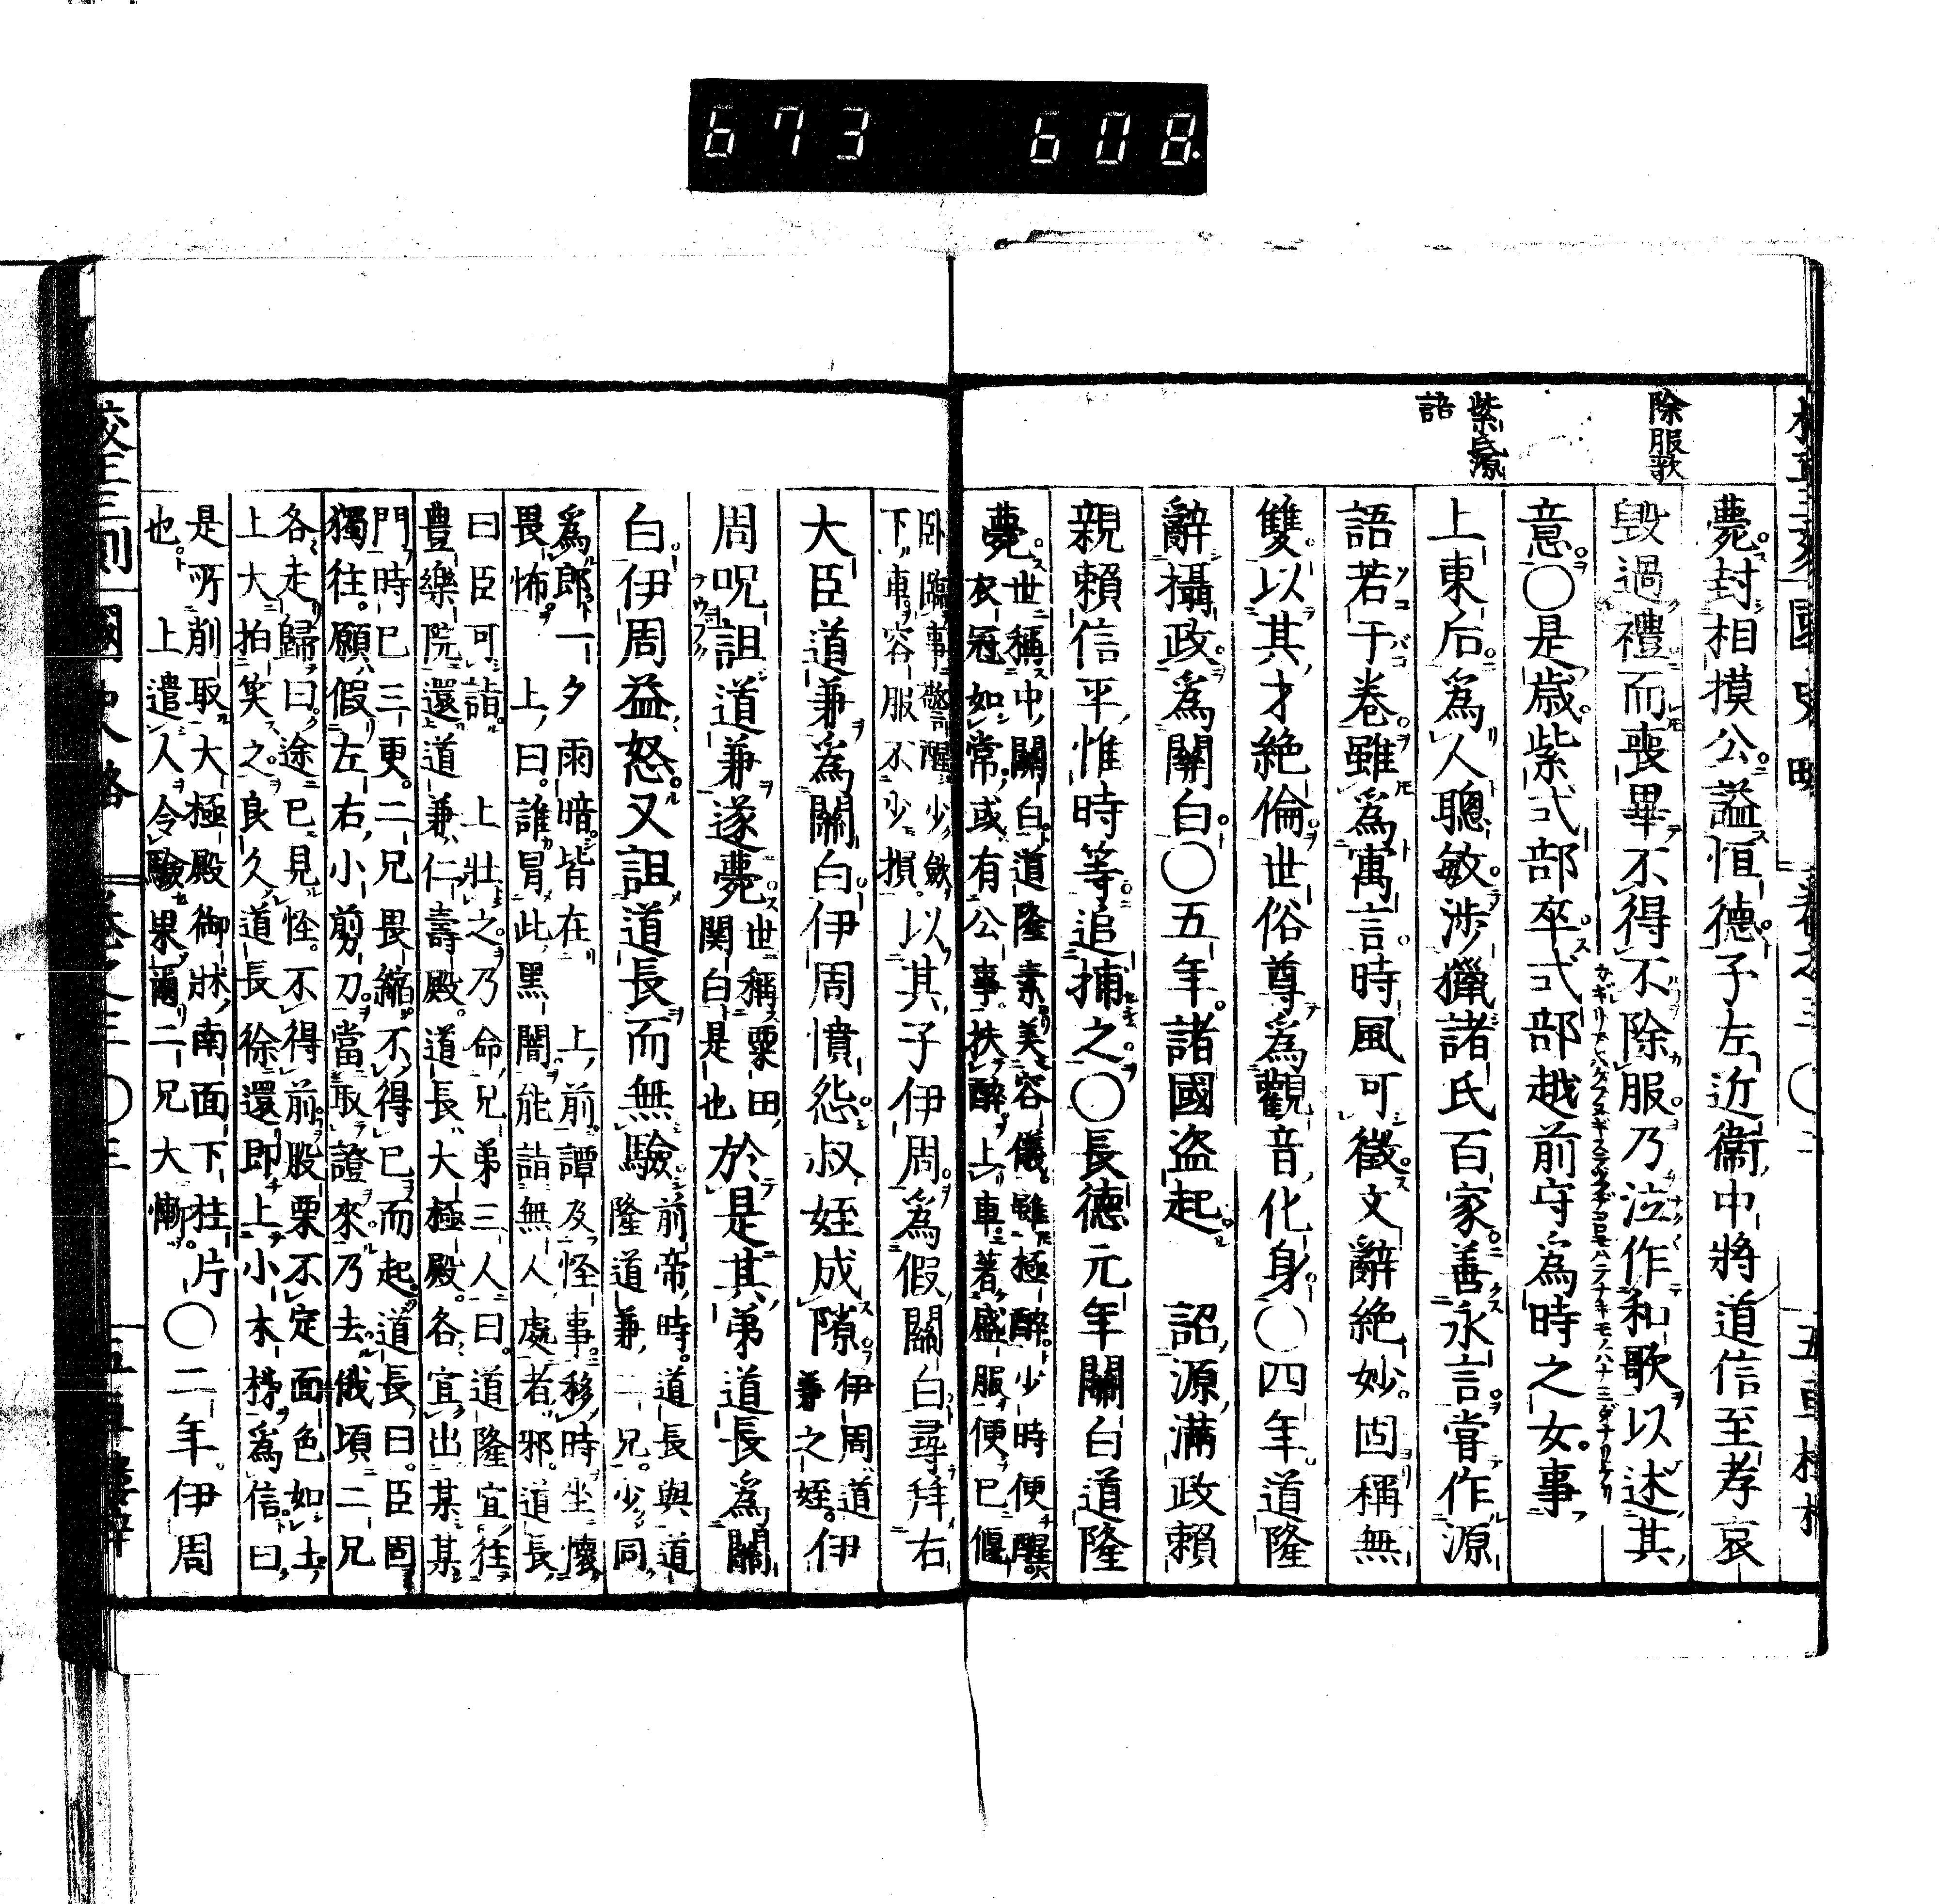 673 608.
除服歌
紫式源
語
薨封相摸公謚恒德子左近衞中將道信至孝哀
毀過禮而喪畢不得不除服乃泣作和歌以述其
カギリアレバケフヌギステツフヂコロモハテナキモノハナミダナリケリ
意〇是歳紫式部卒式部越前守爲時之女事
上東后爲人聰敏涉獵諸氏百家善永言甞作源
語若干卷雖爲寓言時風可徵文辭絶妙固稱無
雙以其才絶倫世俗尊爲觀音化身〇四年道隆
辭攝政爲關白〇五年諸國盗起 詔源滿政賴
親賴信平惟時等追捕之〇長德元年關白道隆
薨世稱中關白道隆素美容儀雖極醉少時便醒
衣冠如常或有公事扶醉上車著盛服便已偃
臥臨事警醒少斂
下車容服不少損以其子伊周爲假關白尋拜右
大臣道兼爲關白伊周憤怨叔姪成隙伊周道
兼之姪伊
周呪詛道兼遂薨世稱粟田
関白是也於是其弟道長爲關
白伊周益怒又詛道長而無驗前帝時道長與道
隆道兼二兄少同
爲郎一夕雨暗皆在 上前譚及怪事移時坐懷
畏怖 上曰誰冒此黑闇能詣無人處者邪道長
曰臣可詣 上壮之乃命兄弟三人曰道隆宜往
豊樂院還道兼仁壽殿道長大極殿各宜出某某
門時已三更二兄畏縮不得已而起道長曰臣固
獨往願假左右小剪刀當取證來乃去俄頃二兄
各走歸曰途已見怪不得前股栗不定面色如土
上大拍笑之良久道長徐還即上小木栉爲信曰
是所削取大極殿御牀南面下柱片
也 上遣人令驗果爾二兄大慚〇二年伊周